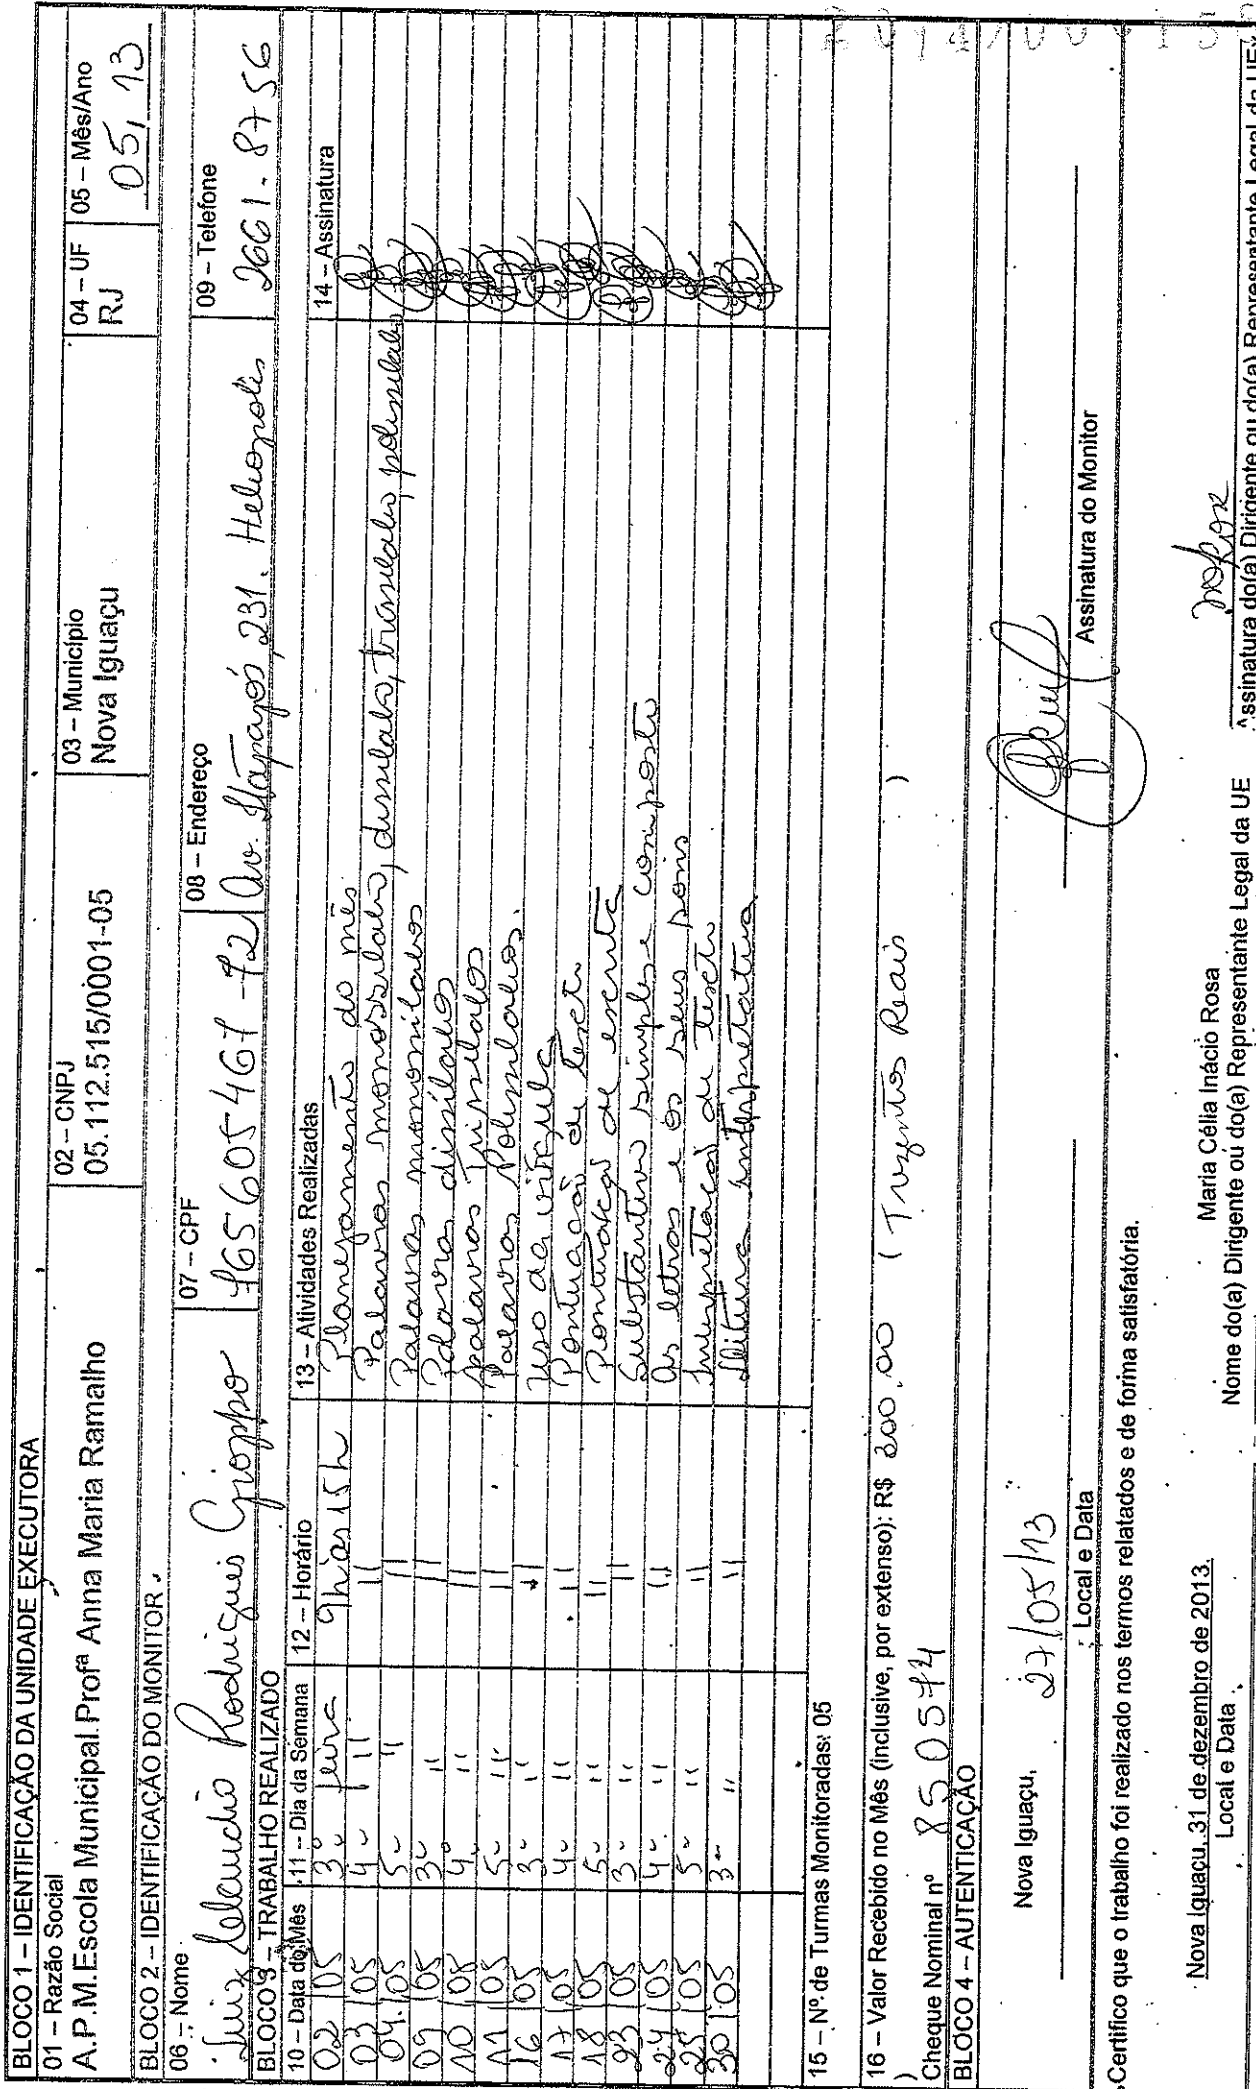 BLOCO 1 – IDENTIFICAÇÃO DA UNIDADE EXECUTORA
01 – Razão Social
A.P.M.Escola Municipal.Profª Anna Maria Ramalho
02 – CNPJ
05.112.515/0001-05
03 – Município
Nova Iguaçu
04 – UF
RJ
05 – Mês/Ano
05, 13
BLOCO 2 – IDENTIFICAÇÃO DO MONITOR
06 – Nome
Luiz Claudio Rodrigues Gioppo
07 – CPF
765605467-72
08 – Endereço
Av. Itapajós 231. Heliopolis
09 – Telefone
2661.8756
BLOCO 3 – TRABALHO REALIZADO
10 – Data do Mês 11 – Dia da Semana 12 – Horário 13 – Atividades Realizadas 14 – Assinatura
02/05 3ª feira 9h às 15h Planejamento do mês
03/05 4ª " " Palavras monossilabo, dissilabo, trissilabo, polissilabo
04/05 5ª " " Palavras monosilabos
09/05 3ª " " Palavra dissilabos
10/05 4ª " " palavras Trissilabos
11/05 5ª " " Palavras Polissilabos.
16/05 3ª " " Uso da virgula
17/05 4ª " " Pontuação de texto
18/05 5ª " " Pontuação de escrita
23/05 3ª " " Substantivo simples e composto
24/05 4ª " " As letras e os seus sons
25/05 5ª " " Interpretação de texto
30/05 3ª " " Leitura interpretativa
15 – Nº de Turmas Monitoradas: 05
16 – Valor Recebido no Mês (inclusive, por extenso): R$ 300,00 ( Trezentos Reais )
)
Cheque Nominal nº 850574
BLOCO 4 – AUTENTICAÇÃO
Nova Iguaçu, 27/05/13
Local e Data
Assinatura do Monitor
Certifico que o trabalho foi realizado nos termos relatados e de forma satisfatória.
Nova Iguaçu, 31 de dezembro de 2013.
Local e Data
Maria Célia Inácio Rosa
Nome do(a) Dirigente ou do(a) Representante Legal da UE
Assinatura do(a) Dirigente ou do(a) Representante Legal da UE